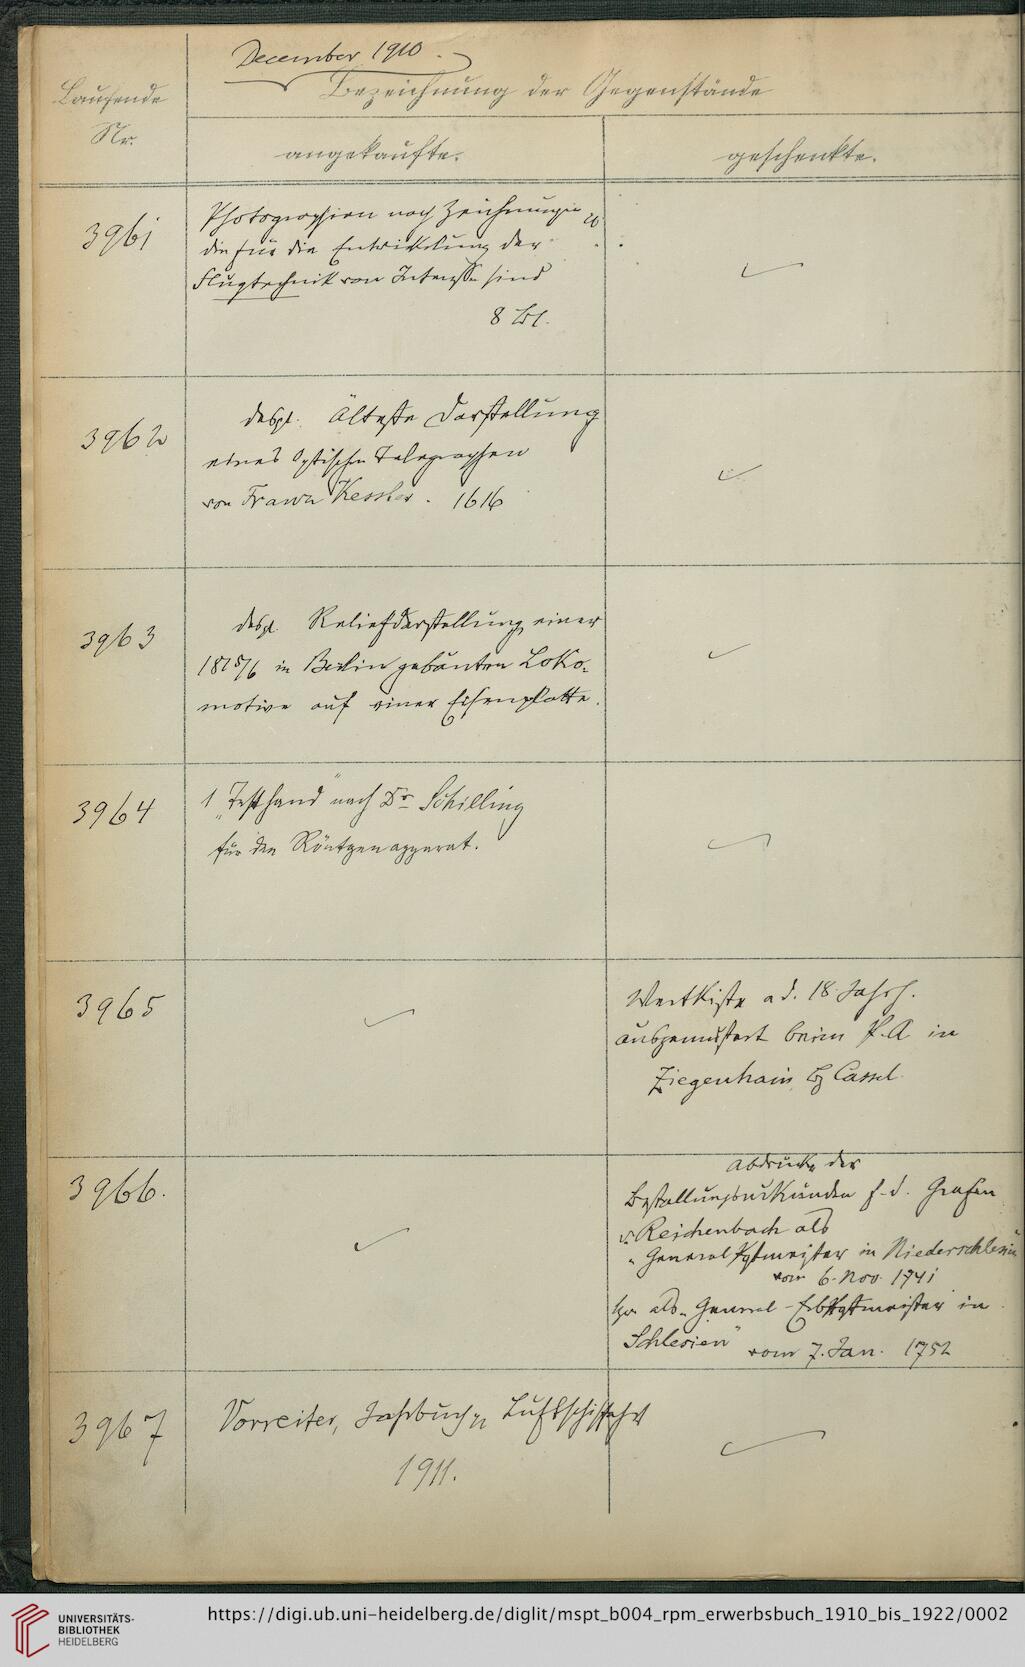 December 1910.
Laufende
Nr.
Bezeichnung der Gegenstände
angekaufte.
geschenkte.
3961
Photographien nach Zeichnungen
die für die Entwickelung der
Flugtechnik von Interesse sind
8 Bl.
3962
desgl. Älteste Darstellung
eines optischen Telegraphen
von Franz Kessler. 1616
3963
desgl. Reliefdarstellung einer
in Berlin gebauten Loko-
motive auf einer Eisenplatte.
3964
1 „Testhand" nach Dr Schilling
für den Röntgenapparat.
3965
Wertkiste a d. 18. Jahrh.
ausgemustert beim P. A in
Ziegenhain Bz Cassel.
3966.
Abdrucke der
Bestallungsurkunden f. d. Grafen
v. Reichenbach als
„General Postmeister in Niederschlesien
vom 6. Nov. 1741
als „General-Erbpostmeister in
Schlesien" vom 7. Jan. 1752
3967
Vorreiter, Jahrbuch Luftschiffahrt
1911.
UNIVERSITÄTS-
BIBLIOTHEK
HEIDELBERG
https://digi.ub.uni-heidelberg.de/diglit/mspt_b004_rpm_erwerbsbuch_1910_bis_1922/0002